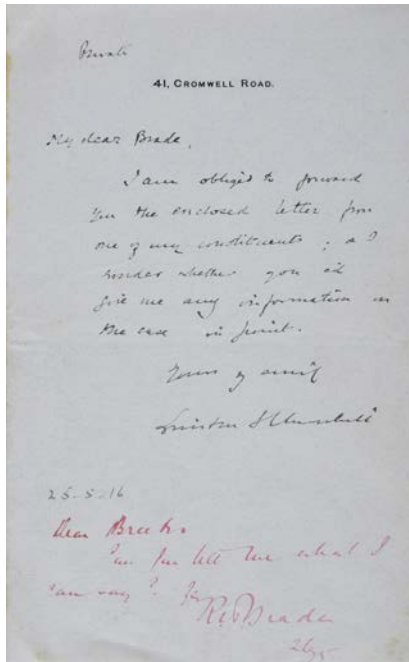 Private
41, CROMWELL ROAD.
My dear Brade,
I am obliged to forward
you the enclosed letter from
one of my constituents; & I
wonder whether you cd
give me any information on
the case in point.
Yours
Winston S Churchill
25-5-16
Dear
Can you tell me what I
can say?
R H Brade